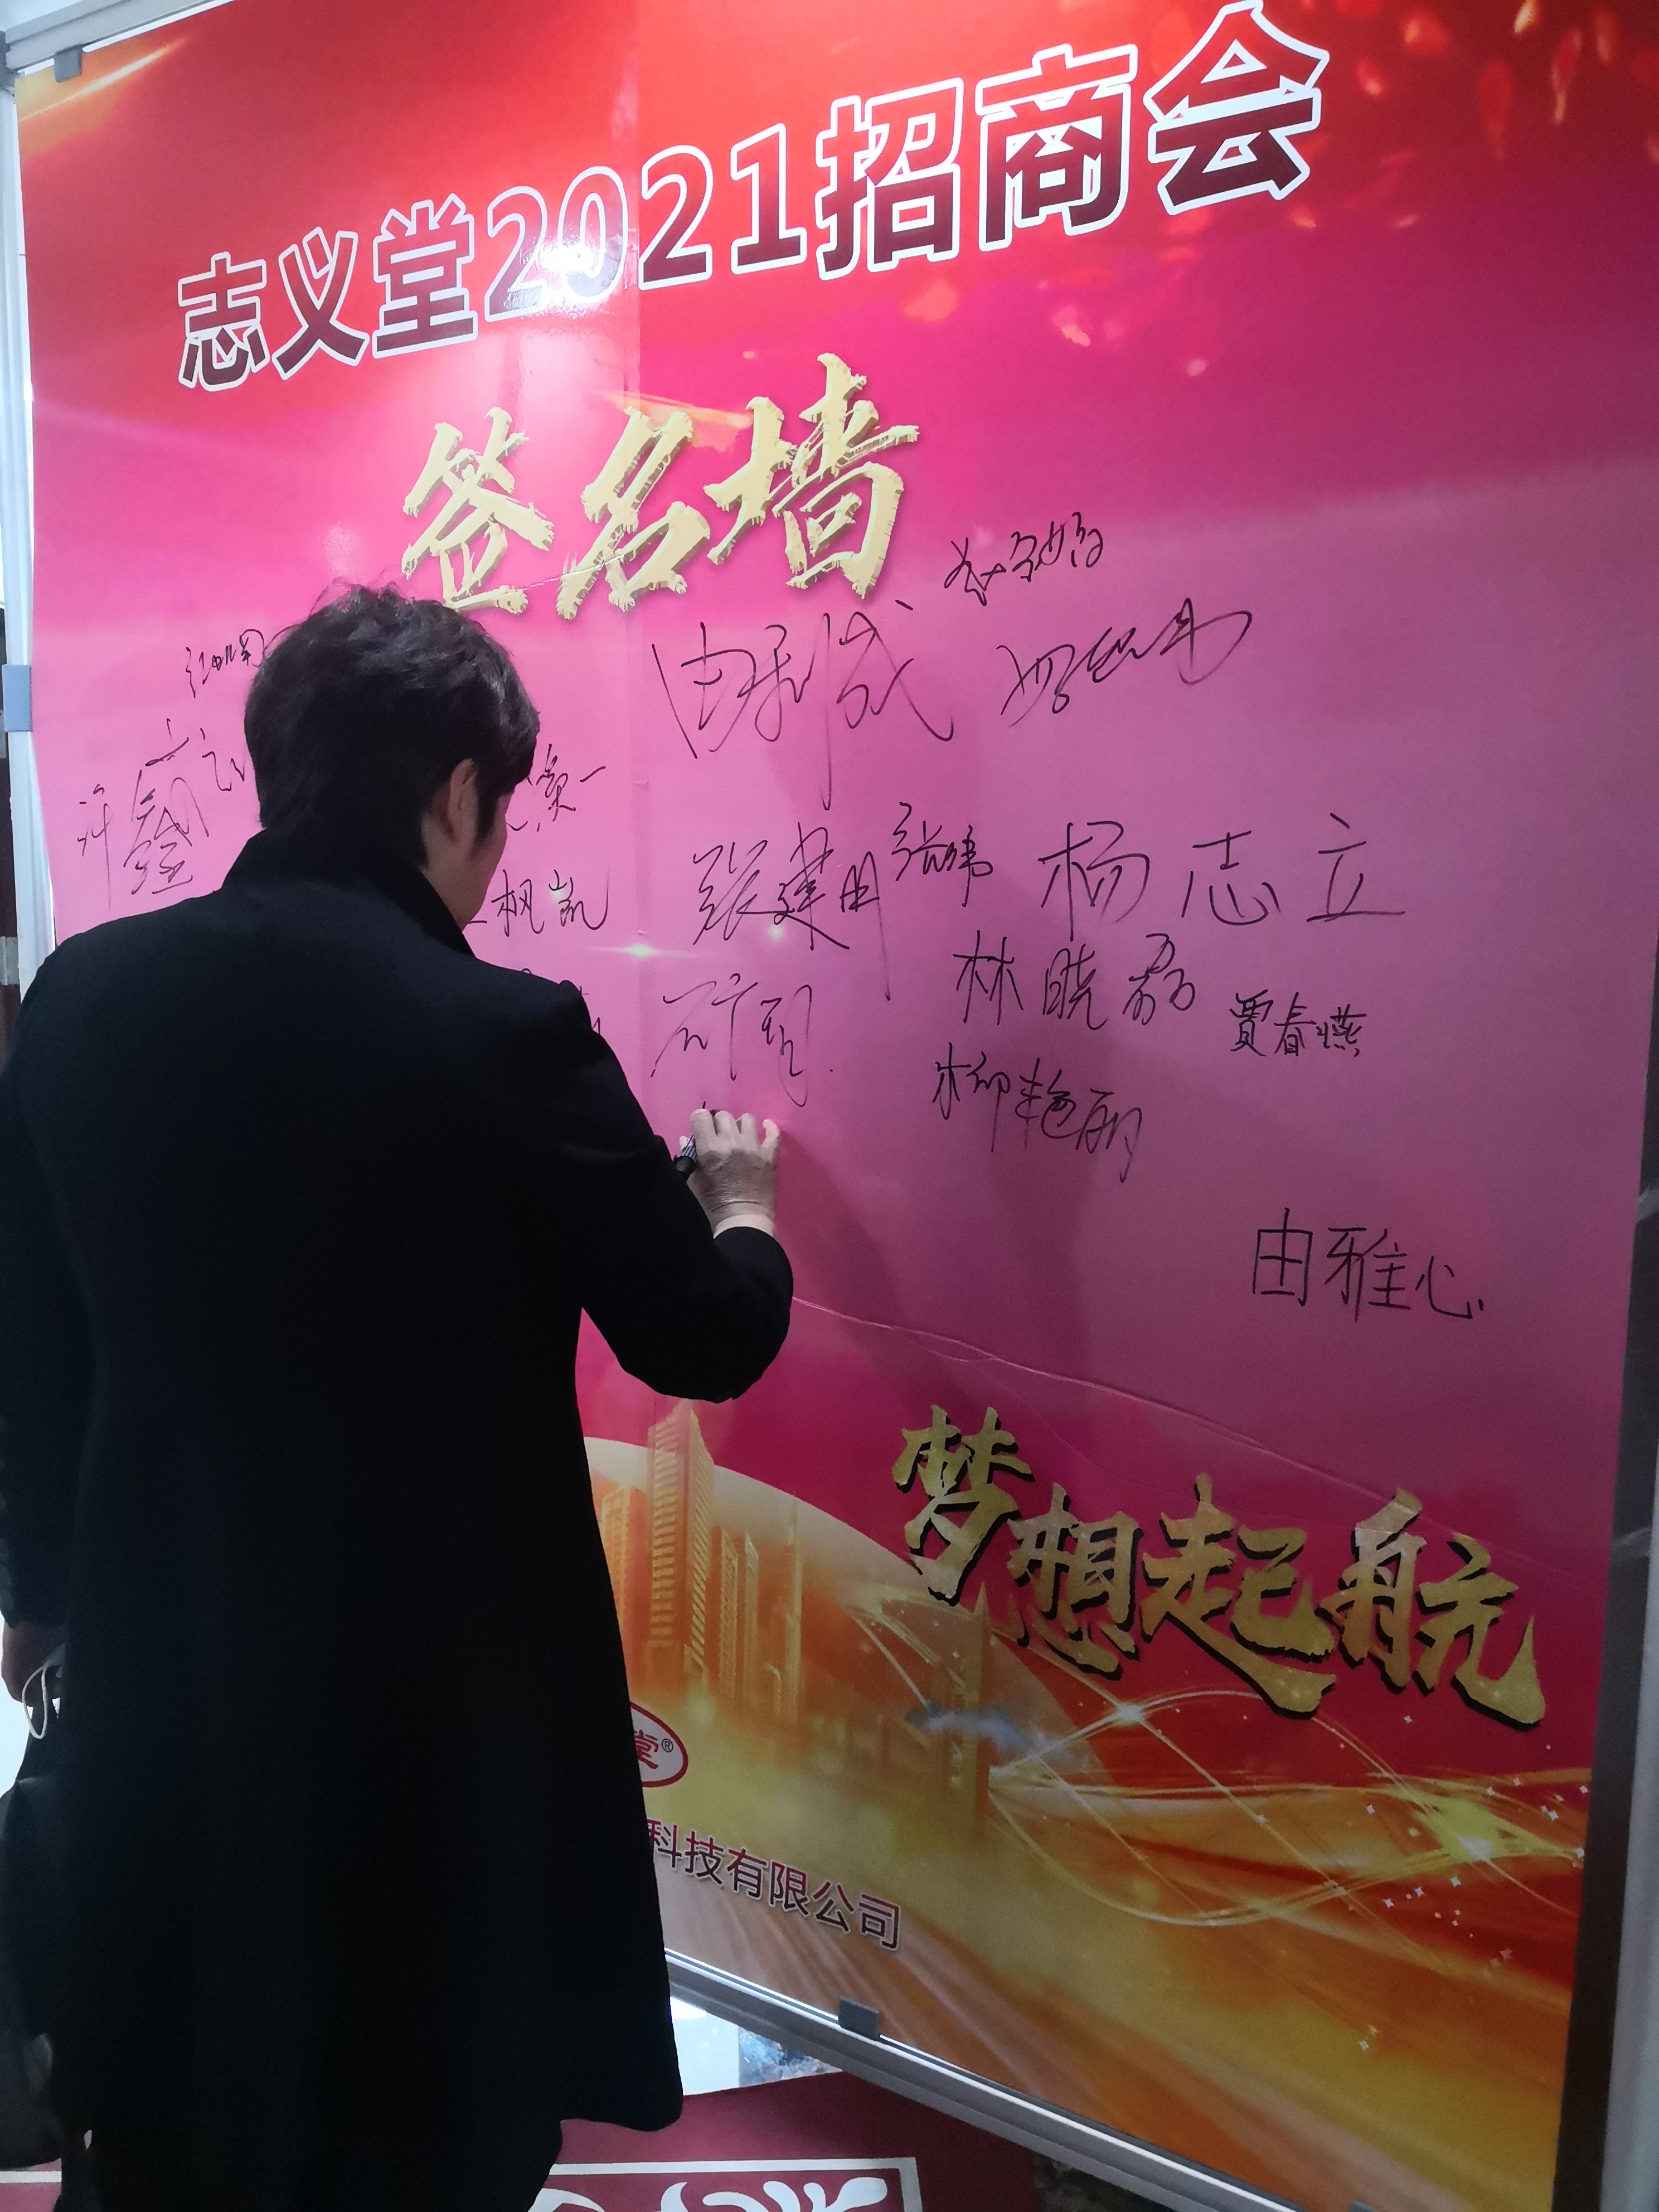 志义堂2021招商会
签名墙
由利成
许鑫
张建国
张炜
杨志立
枫凯
林晓磊
贾春燕
柳艳丽
由雅心
梦想起航
堂®
科技有限公司